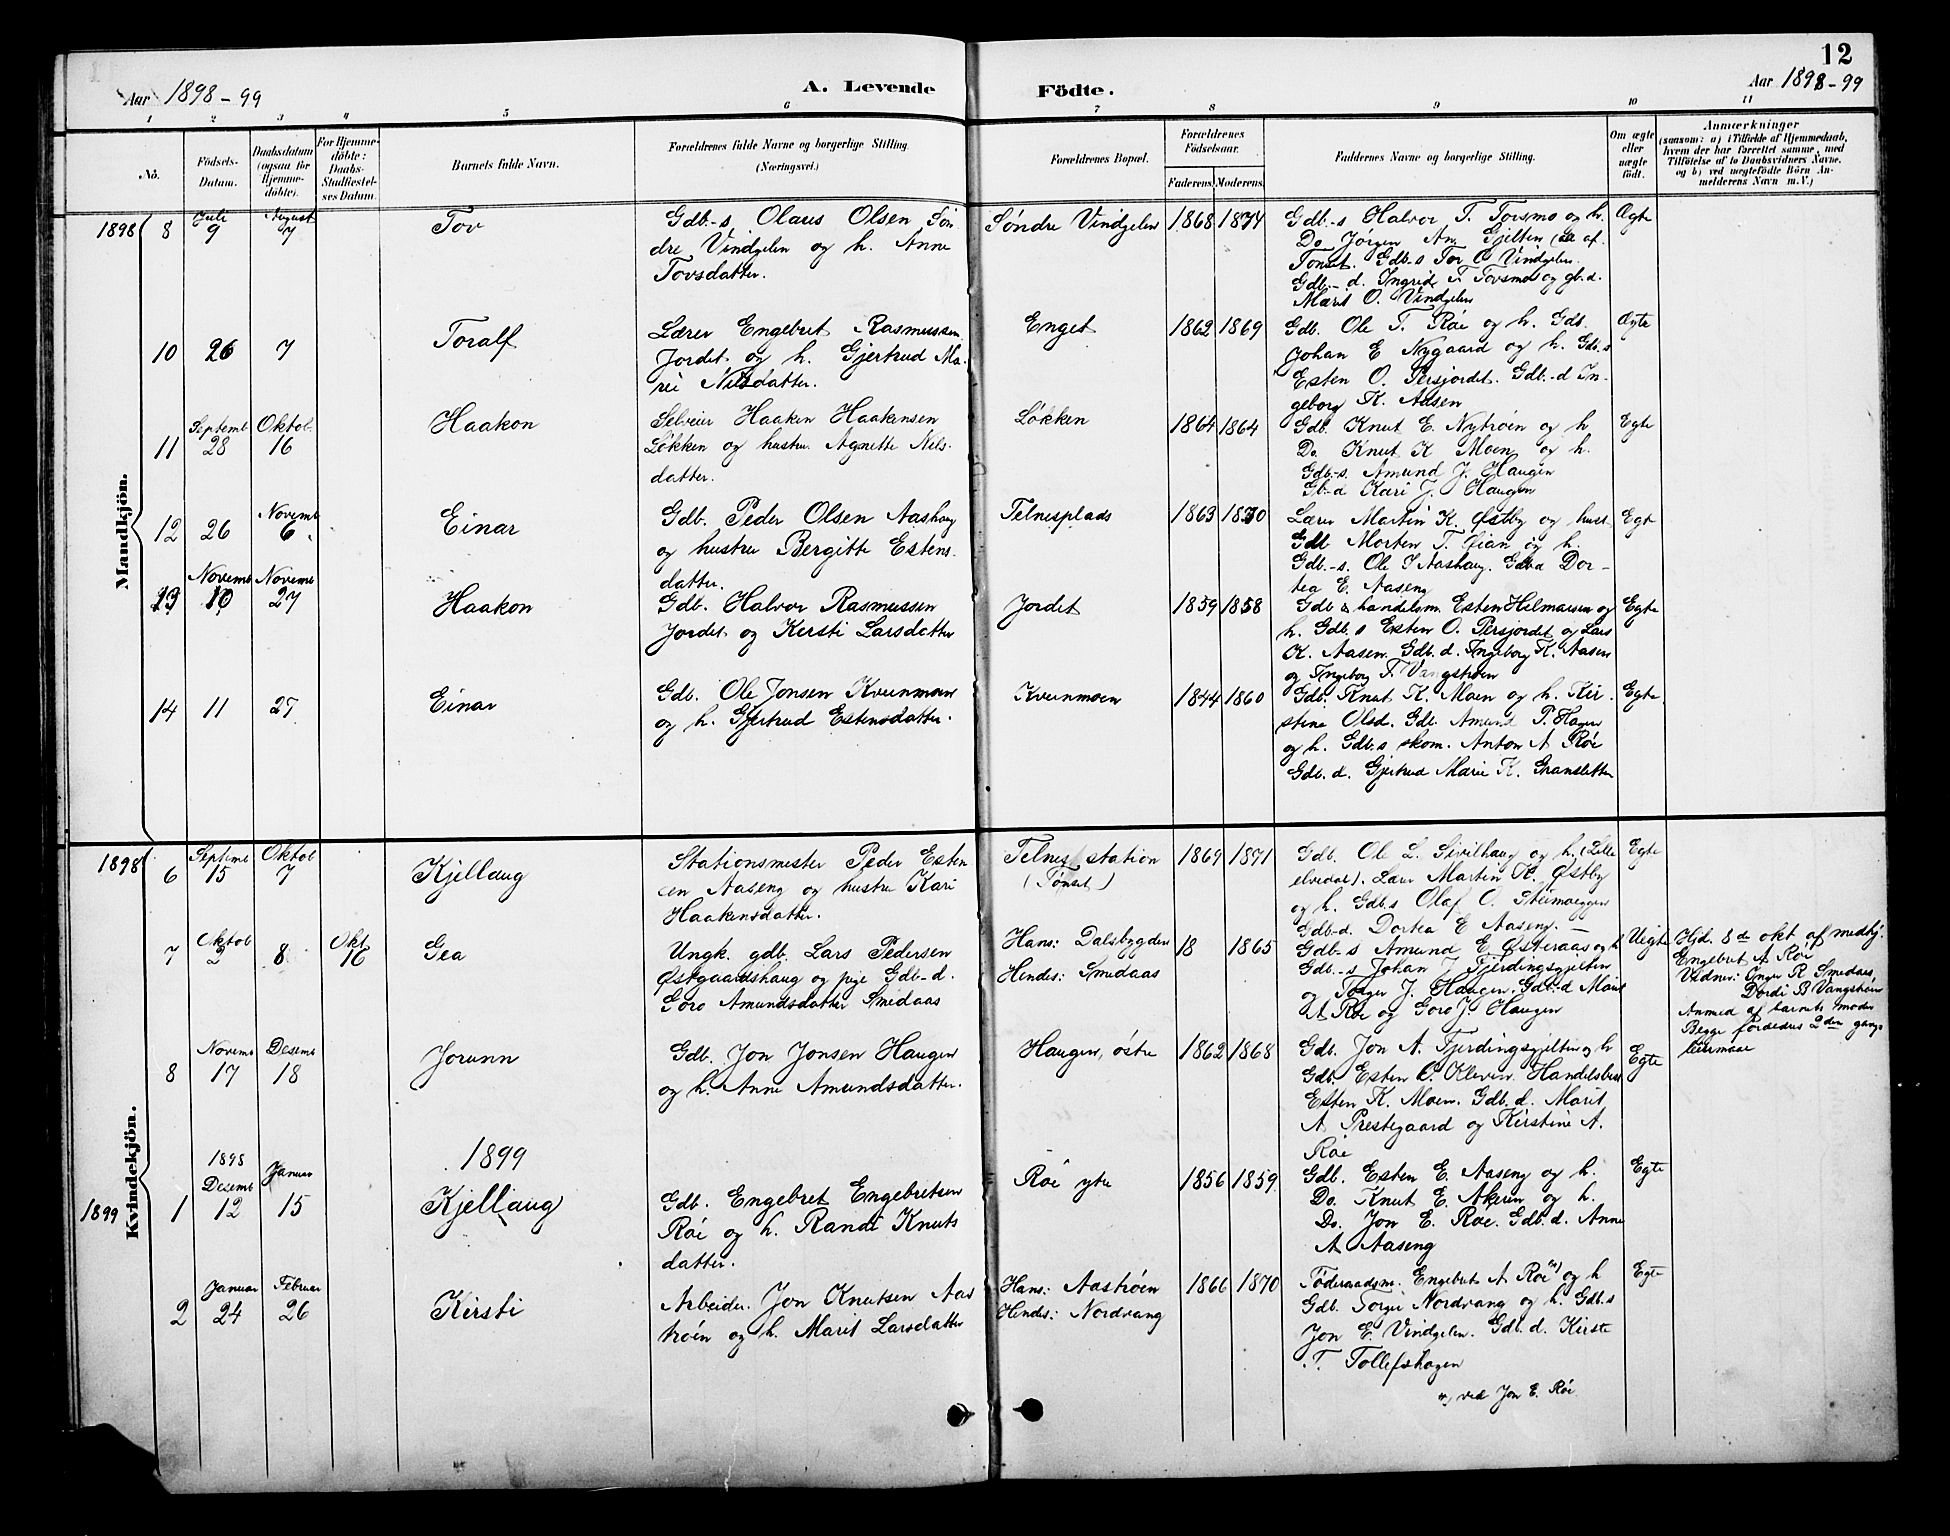 12
Aar 1898-99
A. Levende
Födte.
Aar 1898-99
1 2 3 4 5 6 7 8 9 10 11
No.
Födsels-
Datum.
Daabsdatum
(ogsaa for
Hjemme-
döbte).
For Hjemme-
döbte:
Daabs-
Stadfæstel-
ses Datum.
Barnets fulde Navn.
Forældrenes fulde Navne og borgerlige Stilling.
(Næringsvei.)
Forældrenes Bopæl.
Forældrenes
Födselsaar.
Faderens. Moderens.
Faddernes Navne og borgerlige Stilling.
Om ægte
eller
uægte
födt.
Anmærkninger
(saasom: a) i Tilfælde af Hjemmedaab,
hvem der har forrettet samme, med
Tilföielse af to Daabsvidners Navne,
og b) ved uægtefödte Börn An-
melderens Navn m. V.)
Mandkjön.
1898 8
Juli
9
August
7
Tov
Gdb.-s Olaus Olsen Søn
dre Vindgelen og h. Anne
Tovsdatter.
Søndre Vindgelen
1868 1874
Gdb.-s Halvor T. Tovsmo og h.
Do Jørgen An. Gjelten
Tonset. Gdb.-s Tor O Vindgelen.
Gdb.-d. Ingrid T. Tovsmo og gb.d.
Marit O. Vindgelen
Ægte
10 26 7
Toralf
Lærer Engebret Rasmussen
Jordet og h. Gjertrud Ma-
rie Nilsdatter.
Enget
1862 1869
Gdb. Ole T. Røe og h. Gdb.
Johan E Nygaard og h. Gdb.s
Esten O. Persjordet. Gdb.-d In-
geborg K. Aasen
Ægte
11
Septemb
28
Oktob.
16
Haakon
Selveier Haaken Haakensen
Løkken og hustru Agnette Nils-
datter.
Løkken
1864 1864
Gdb. Knut E. Nytrøen og h
Do Knut K Moen og h.
Gdb.-s. Amund J. Haugen
Gb-d Kari J. Haugen
Egte
12 26
Novemb
6
Einar
Gdb. Peder Olsen Aashaug
og hustru Bergitte Estens-
datter.
Telnesplads
1863 1870
Lærer Martin K. Østby og hust
Gdb Morten T. Øian og h.
Gdb.-s. Ole J Aashaug. Gdb.d Dor-
tea E. Aaseng
Egte
13
Novemb
10
Novemb
27
Haakon
Gdb. Halvor Rasmussen
Jordet og Kersti Larsdatter
Jordet
1859 1858
Gdb & handelsm. Esten Helmarsen og
h. Gdb.s Esten O. Persjordet og Lars
K. Aasen. Gdb.d. Ingeborg K. Aasen
og Ingeborg T. Vangstrøen
Egte
14 11 27
Einar
Gdb. Ole Jonsen Kvernmoen
og h. Gjertrud Estensdatter.
Kvernmoen
1844 1860
Gdb. Knut K. Moen og h. Kir-
stine Olsd. Gdb. Amund P. Hagen
og h. Gdb.s skom. Anton A Røe
Gdb.d. Gjertrud Marie K. Gransletten
Egte.
Kvindekjön.
1898 6
Septemb
15
Oktob
7
Kjellaug
Stationsmester Peder Esten
sen Aaseng og hustru Kari
Haakensdatter.
Telnes station
(Tønset)
1869 1871
Gdb. Ole L. Sivilhaug og h. (Lille
elvedal). Lærer Martin K. Østby
og h. Gdb.s Olaf O. Steimoeggen
Gdb-d. Dortea E Aaseng. –
Egte
7
Oktob
2
8
Okt
16
Gea
Ungk. gdb. Lars Pedersen
Østgaardshaug og pige Gdb-d.
Goro Amundsdatter Smedaas
Hans: Dalsbygden
Hendes: Smedaas
18 1865
Gdb-s Amund E. Østeraas og h
Gdb.-s Johan J Fjerdingsgjelten
og Torger J. Haugen. Gdb-d Marit
A Røe og Goro J. Haugen
Uegte
Hjd. 8de okt af medhj.
Engebret A Røe
Vidner: Inger R Smedaas,
Dordi B Vangstrøen
Anmed af barnets moder
Begge forældres 2den gangs
leiermaal
8
Novemb
17
Desemb
18
Jorunn
Gdb. Jon Jonsen Haugen
og h. Anne Amundsdatter.
Haugen, østre
1862 1868
Gdb. Jon A. Fjerdingsgjelten og h
Gdb. Esten O. Kleven. Handelsbest
Esten K. Moen. Gdb.d. Marit
A. Prestegaard og Kirstine A.
Røe
Egte
1899
1899 1
1898
Desemb
12
Januar
15
Kjellaug
Gdb. Engebret Engebretsen
Røe og h. Randi Knuts
datter.
Røe ytre
1856 1859
Gdb. Esten E. Aaseng og h.
Do. Knut E. Akeren og h.
Do. Jon E. Røe. Gdb.d. Anne
A Aaseng
Egte
2
Januar
24
Februar
26
Kirsti
Arbeider Jon Knutsen Aas
trøen og h. Marit Larsdatter
Hans: Aastrøen
Hendes: Nordvang
1866 1870
Føderaadsm. Engebret A Røe x) og h
Gdb. Torger Nordvang og h. Gdb.s
Jon E. Vindgelen. Gdb.d. Kirste
T. Tollefshagen
x) ved Jon E. Røe
Egte